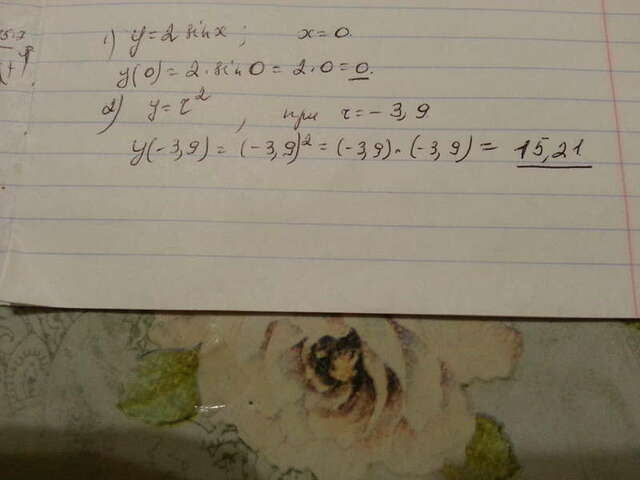 1) y = 2 sin x ; x = 0.
y(0) = 2 · sin 0 = 2 · 0 = 0.
2) y = τ², при τ = -3,9
y(-3,9) = (-3,9)² = (-3,9) · (-3,9) = 15,21